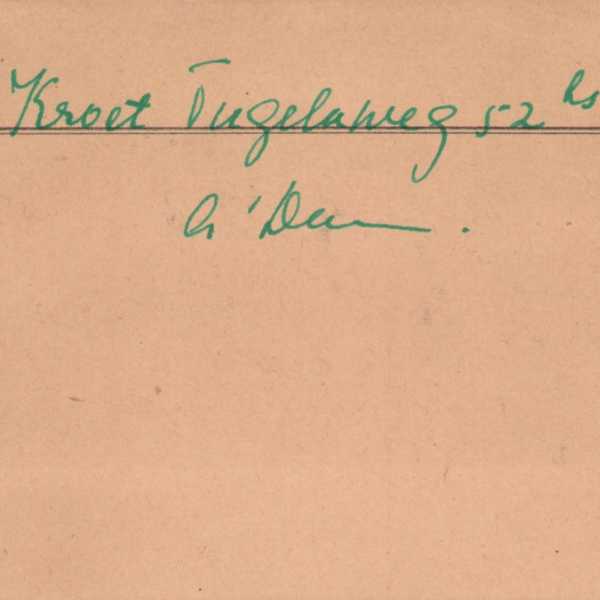 Kroet Tugelaweg 52 hs
A'Dam.